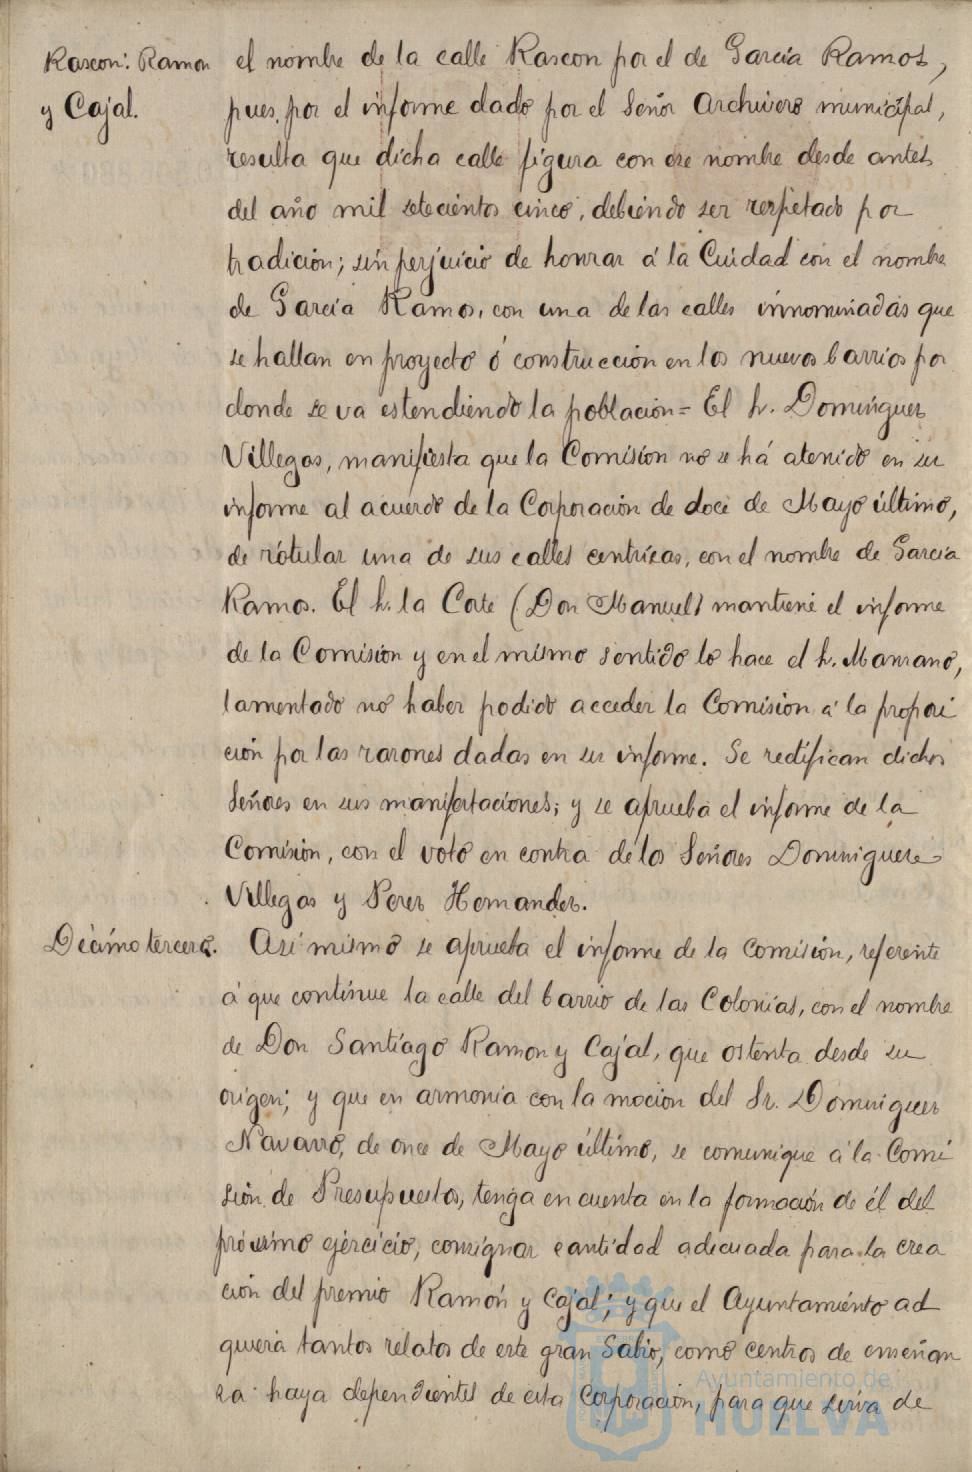 Rascon: Ramon
y Cajal.
el nombre de la calle Rascon por el de García Ramos,
pues, por el informe dado por el Señor Archivero municipal,
resulta que dicha calle figura con ese nombre desde antes
del año mil setecientos cinco, debiendo ser respetado por
tradición; sin perjuicio de honrar á la Ciudad con el nombre
de García Ramos, con una de las calles innominadas que
se hallan en proyecto ó construcción en los nuevos barrios por
donde se va estendiendo la población = El Sr. Dominguez
Villegas, manifiesta que la Comisión no se há atenido en su
informe al acuerdo de la Corporación de doce de Mayo último,
de rótular una de sus calles centricas, con el nombre de García
Ramos. El Sr. la Corte (Don Manuel) mantiene el informe
de la Comisión y en el mismo sentido lo hace el Sr. Manzano,
lamentado no haber podido acceder la Comisión á la proposi
ción por las razones dadas en su informe. Se rectifican dichos
Señores en sus manifestaciones; y se aprueba el informe de la
Comisión, con el voto en contra de los Señores Dominguez
Villegas y Perez Hernandez.
Décimo tercero.
Asi mismo se aprueba el informe de la Comisión, referente
á que continue la calle del barrio de las Colonias, con el nombre
de Don Santiago Ramon y Cajal, que ostenta desde su
origen; y que en armonía con la moción del Sr. Dominguez
Navarro, de once de Mayo último, se comunique á la Comi
sión de Presupuestos, tenga en cuenta en la formación de él del
próximo ejercicio, consignar cantidad adecuada para la crea
ción del premio Ramón y Cajal; y que el Ayuntamiento ad
quiera tantos relatos de este gran Sabio, como centros de enseñan
za haya dependientes de esta Corporación, para que sirva de
Ayuntamiento de
HUELVA